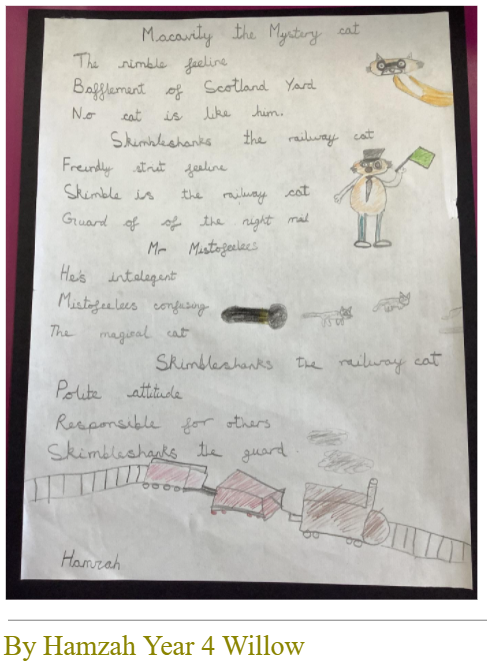 Macavity the Mystery cat
The nimble feeline
Bafflement of Scotland Yard
No cat is like him.
Skimbleshanks the railway cat
Freirdly strict feeline
Skimble is the railway cat
Guard of of the night mail
Mr Mistofeelees
He's intelegent
Mistofeelees confusing
The magical cat
Skimbleshanks the railway cat
Polite attitude
Responsible for others
Skimbleshanks the guard
Hamzah
By Hamzah Year 4 Willow